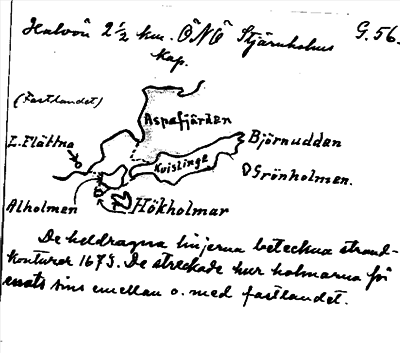 Halvön 2 ½ km. ÖNÖ Stjärnholms G. 56.
kap.
(Fastlandet)
Aspafjärden
L. Flättna
Björnudden
Kvislinge
Grönholmen.
Alholmen
Hökholmar
De heldragna linjerna beteckna strand-
konturer 1675. De streckade hur holmarna för
enats sins emellan o. med fastlandet.